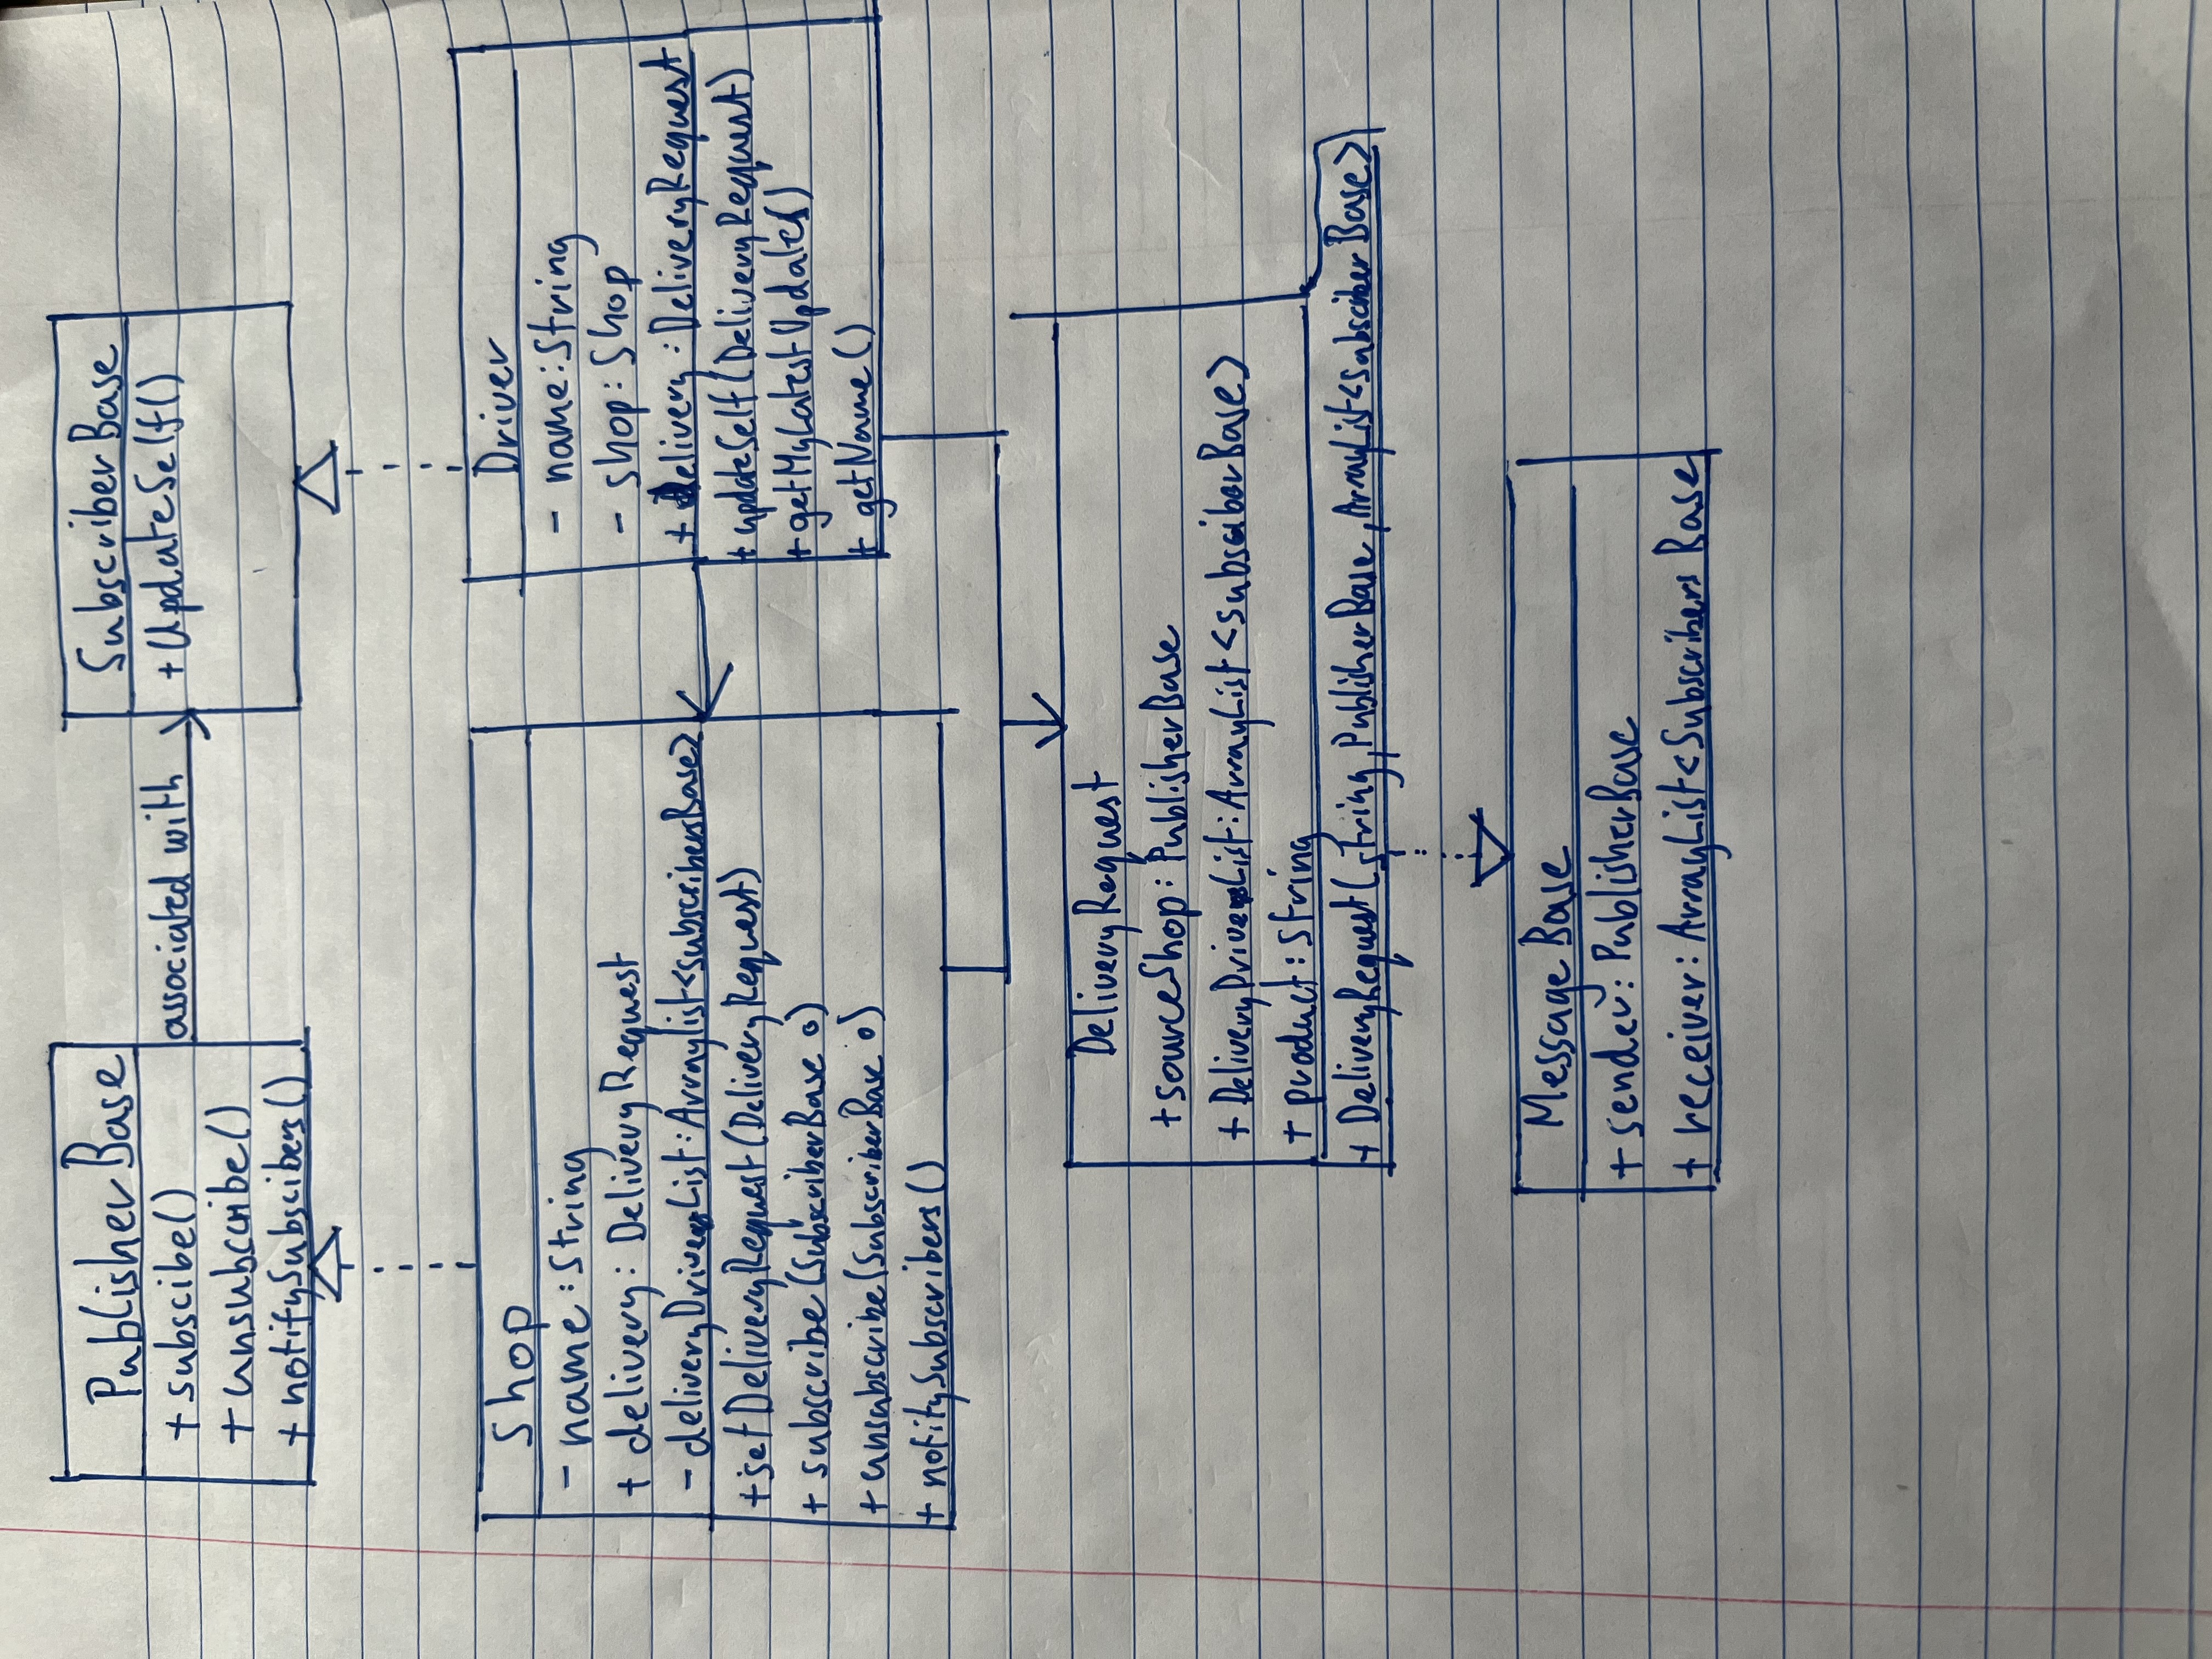 PublisherBase
+ subscibe()
+ unsubscribe()
+ notifySubscibers()
associated with
SubscriberBase
+ UpdateSelf()
Shop
- name: String
+ delivery: DeliveryRequest
- deliveryDriversList: Arraylist<subscribersBase>
+ setDeliveryRequest(DeliveryRequest)
+ subscribe(SubscriberBase o)
+ unsubscribe(SubscriberBase o)
+ notifySubscribers()
Driver
- name: String
- shop: Shop
+ Delivery: DeliveryRequest
+ updateSelf(DeliveryRequest)
+ getMyLatestUpdate()
+ getName()
DeliveryRequest
+ sourceShop: PublisherBase
+ DeliveryDriversList: ArrayList<subsciberBase>
+ product: String
+ DeliveryRequest(string, PublisherBase, ArrayList<subscriberBase>)
MessageBase
+ sender: PublisherBase
+ receiver: ArrayList<Subscribers Base